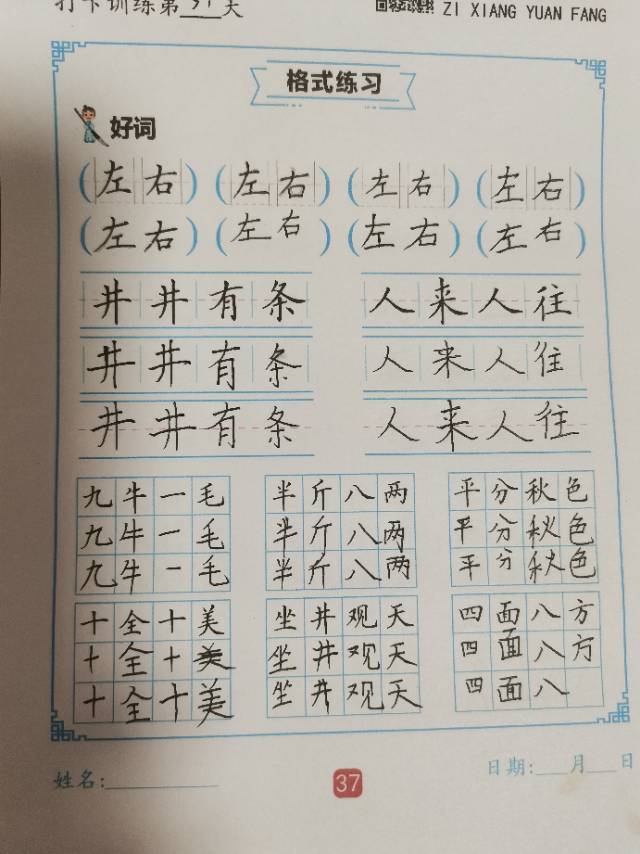 打卡训练第37天
ZI XIANG YUAN FANG
格式练习
好词
(左右) (左右) (左右) (左右)
(左右) (左右) (左右) (左右)
井井有条 人来人往
井井有条 人来人往
井井有条 人来人往
九牛一毛 半斤八两 平分秋色
九牛一毛 半斤八两 平分秋色
九牛一毛 半斤八两 平分秋色
十全十美 坐井观天 四面八方
十全十美 坐井观天 四面八方
十全十美 坐井观天 四面八
姓名: 37 日期: 月 日